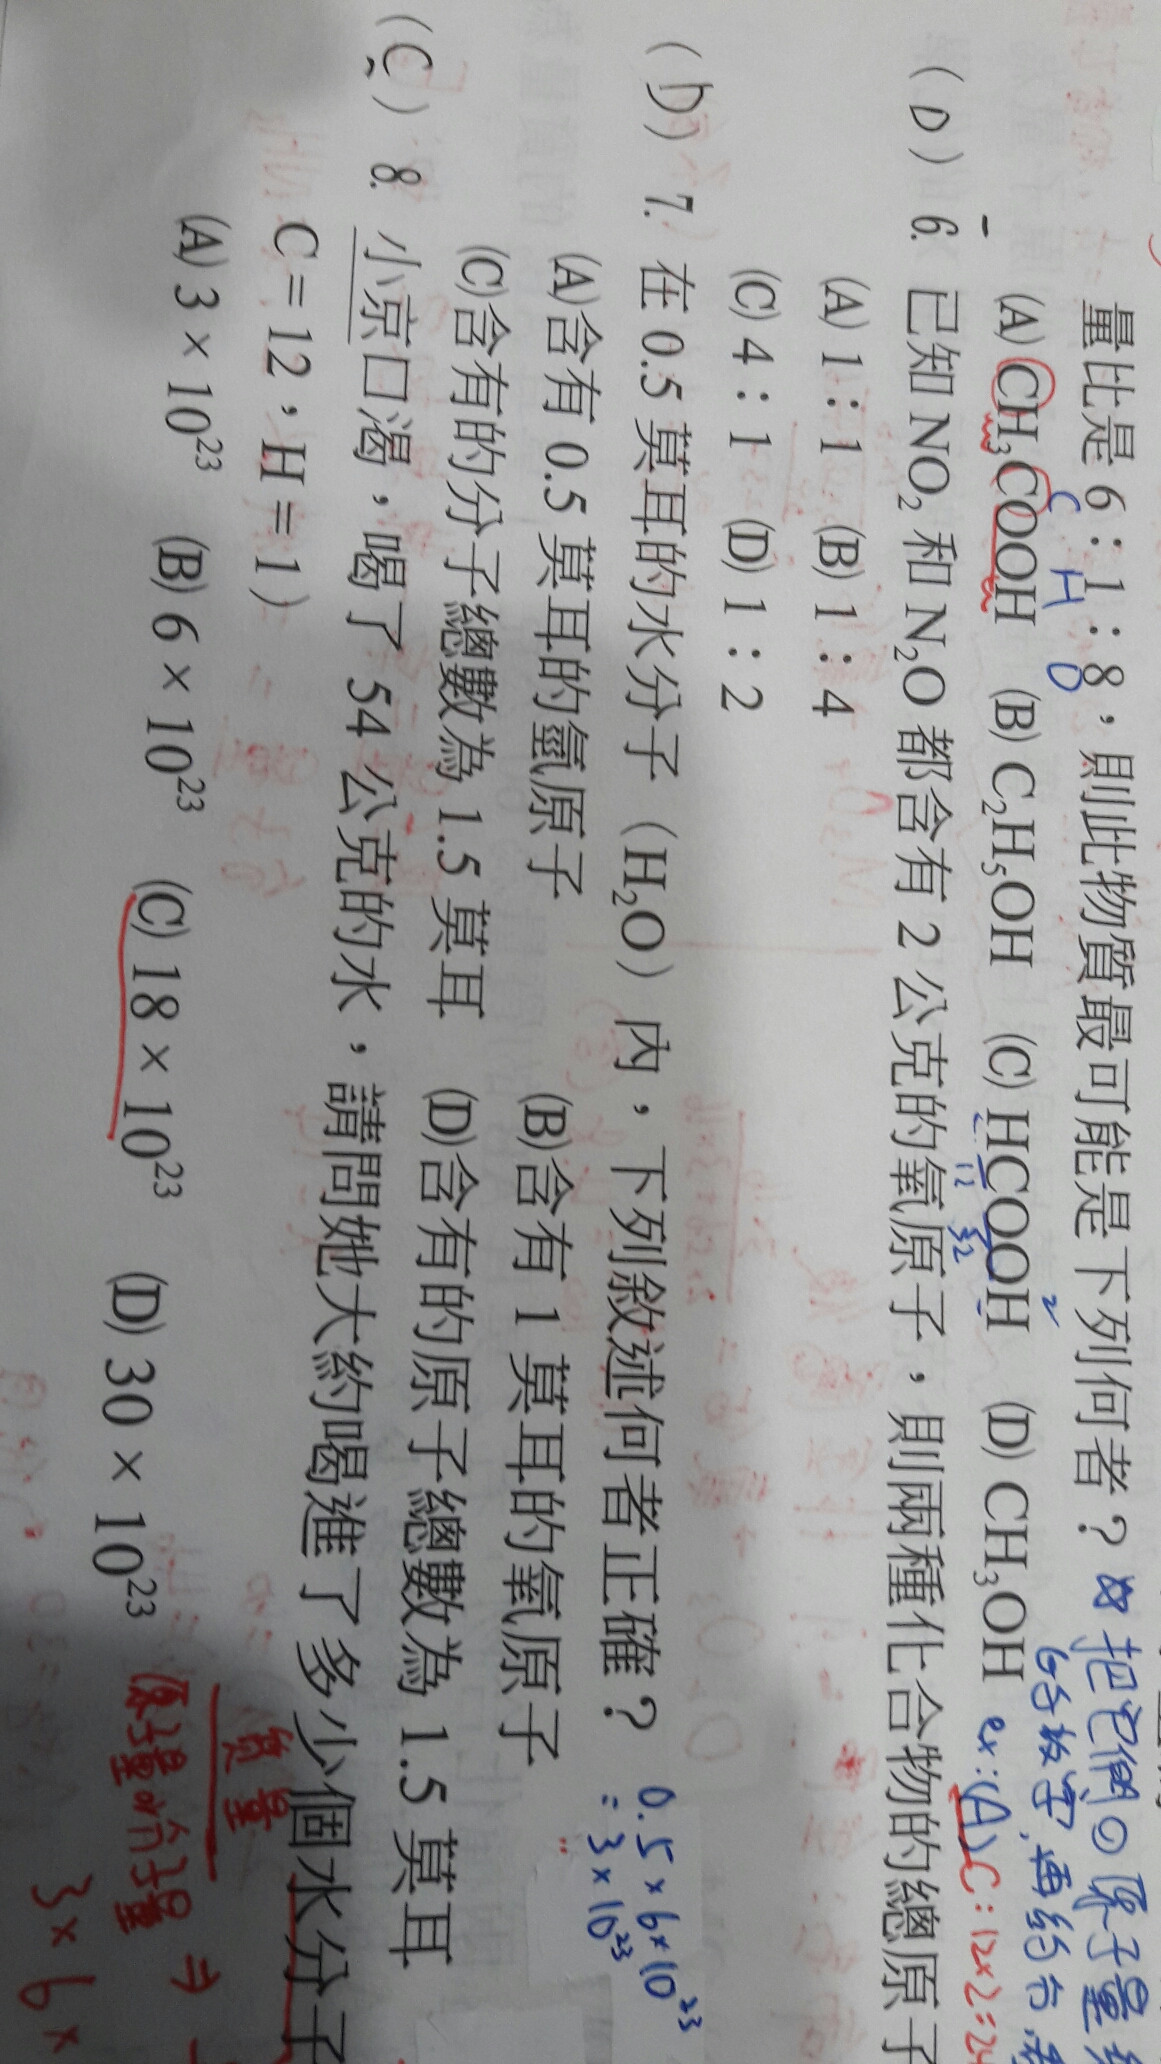 量比是 6：1：8，則此物質最可能是下列何者？☆把它們的原子量
C H O
(A) CH₃COOH (B) C₂H₅OH (C) HCOOH (D) CH₃OH ex：(A) C：12×2=24
12 32 2
(D) 6. 已知 NO₂ 和 N₂O 都含有 2 公克的氧原子，則兩種化合物的總原子
(A) 1：1 (B) 1：4
(C) 4：1 (D) 1：2
(D) 7. 在 0.5 莫耳的水分子（H₂O）內，下列敘述何者正確？ 0.5×6×10²³
=3×10²³
(A)含有 0.5 莫耳的氫原子 (B)含有 1 莫耳的氧原子
(C)含有的分子總數為 1.5 莫耳 (D)含有的原子總數為 1.5 莫耳
(C) 8. 小京口渴，喝了 54 公克的水，請問她大約喝進了多少個水分子
C = 12，H = 1）
質量
原子量or分子量
(A) 3 × 10²³ (B) 6 × 10²³ (C) 18 × 10²³ (D) 30 × 10²³
3×6×